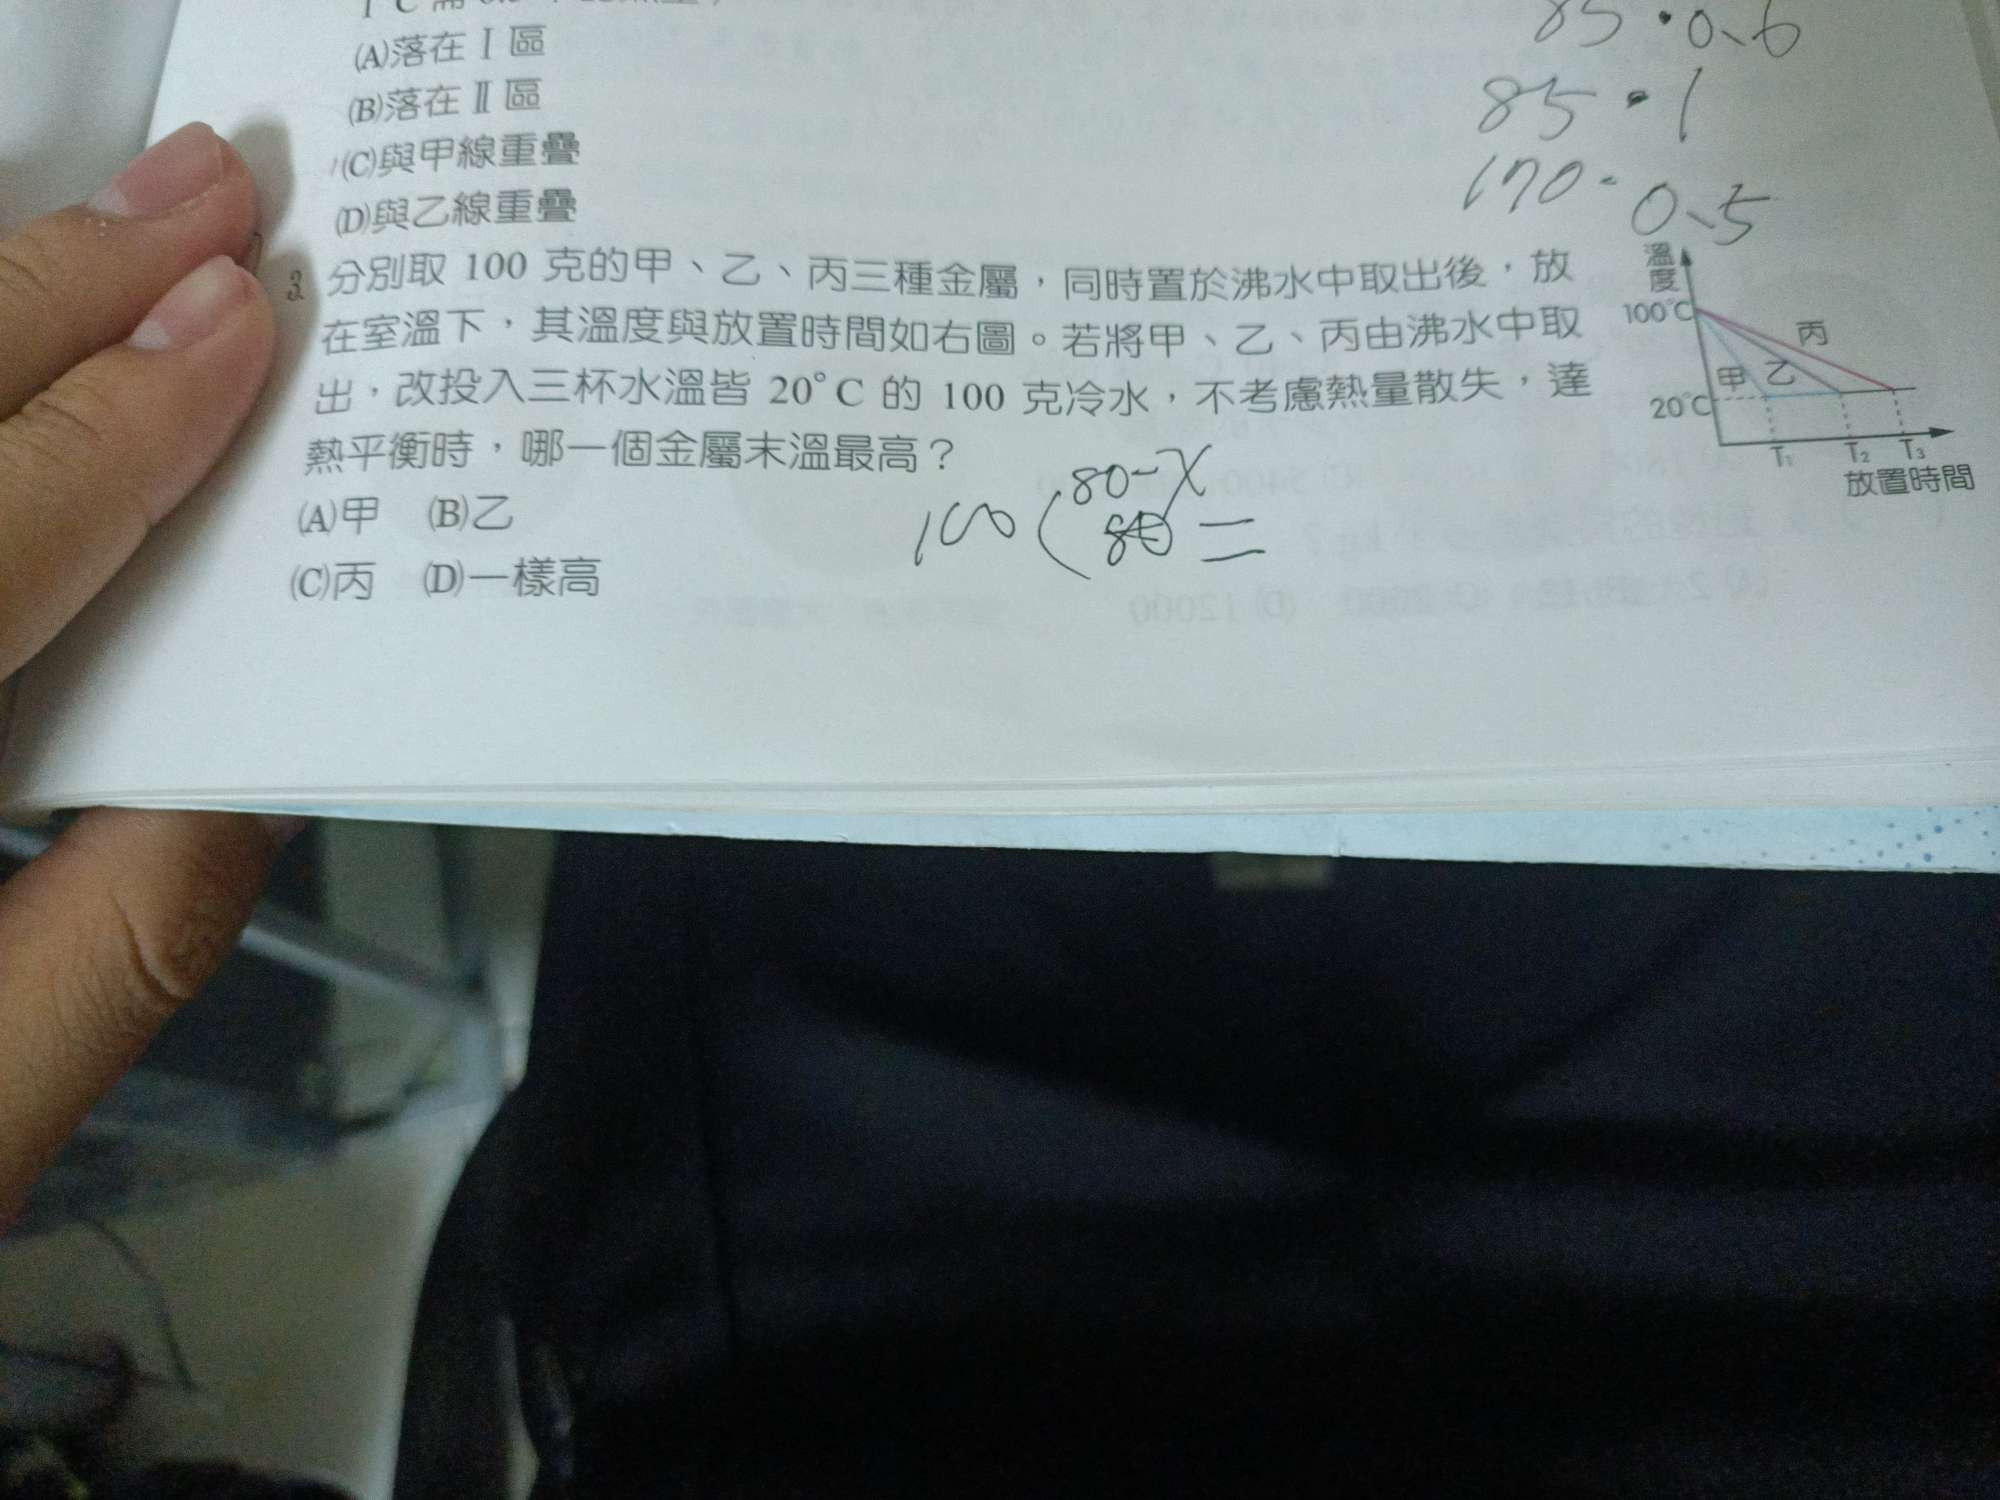 (A)落在Ⅰ區
85·0.6
(B)落在Ⅱ區
85·1
(C)與甲線重疊
170·0.5
(D)與乙線重疊
3 分別取 100 克的甲、乙、丙三種金屬，同時置於沸水中取出後，放
在室溫下，其溫度與放置時間如右圖。若將甲、乙、丙由沸水中取
出，改投入三杯水溫皆 20°C 的 100 克冷水，不考慮熱量散失，達
熱平衡時，哪一個金屬末溫最高？
(A)甲 (B)乙
(C)丙 (D)一樣高
80-X
100( =
溫度
100°C
丙
甲 乙
20°C
T₁ T₂ T₃
放置時間